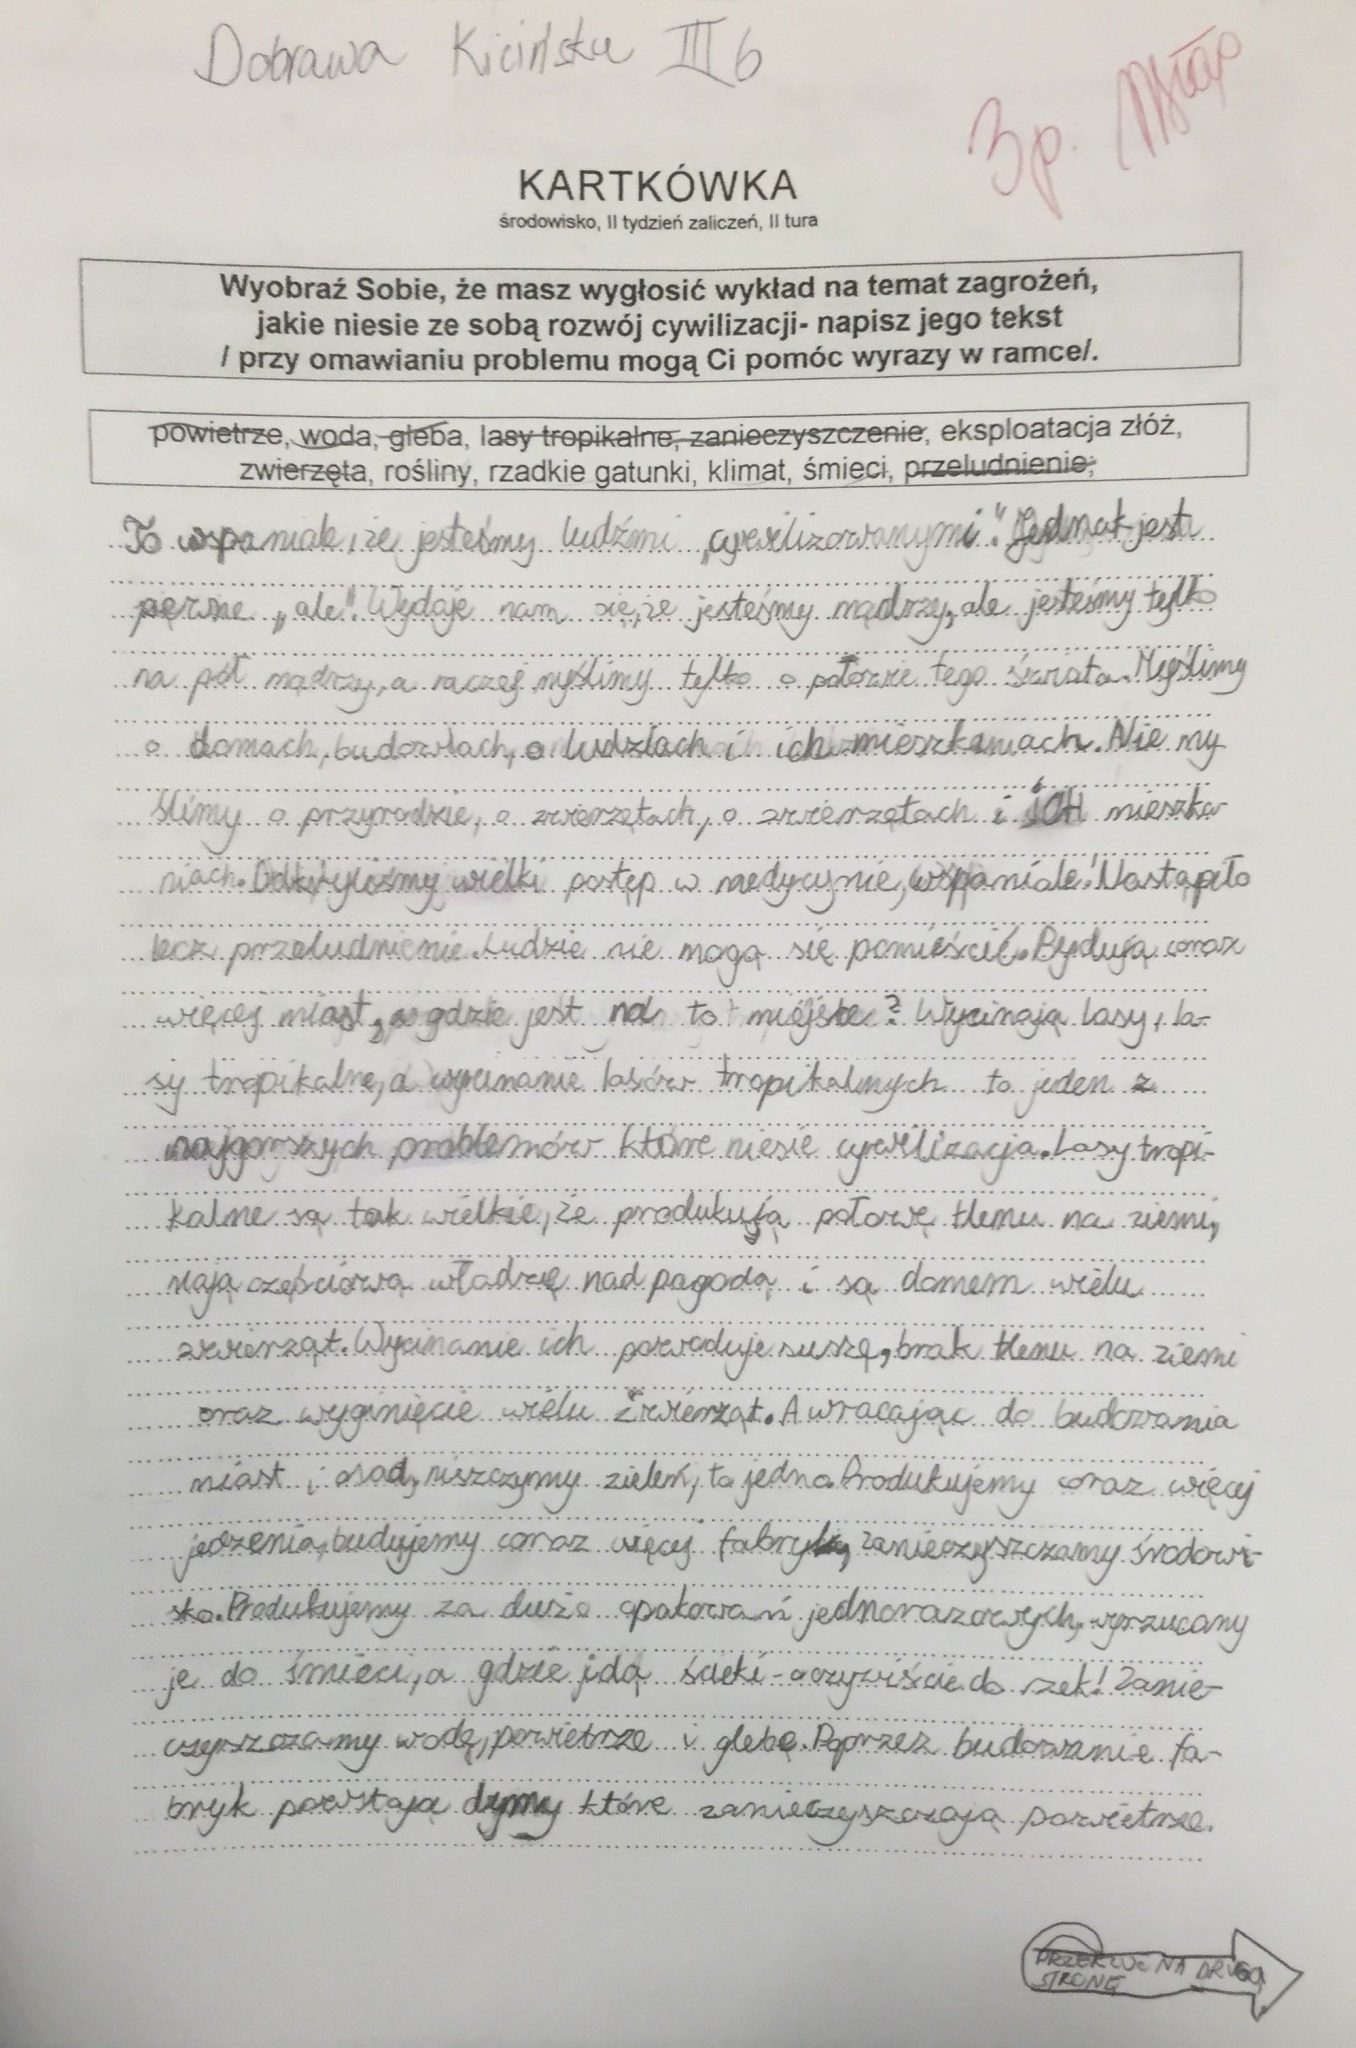 Dobrawa Kicińska III b
3p.
KARTKÓWKA
środowisko, II tydzień zaliczeń, II tura
Wyobraź Sobie, że masz wygłosić wykład na temat zagrożeń,
jakie niesie ze sobą rozwój cywilizacji- napisz jego tekst
/ przy omawianiu problemu mogą Ci pomóc wyrazy w ramce/.
powietrze, woda, gleba, lasy tropikalne, zanieczyszczenie, eksploatacja złóż,
zwierzęta, rośliny, rzadkie gatunki, klimat, śmieci, przeludnienie,
To wspaniale, że jesteśmy ludźmi „cywilizowanymi". Jednak jest
pewne „ale". Wydaje nam się, że jesteśmy mądrzy, ale jesteśmy tylko
na pół mądrzy, a raczej myślimy tylko o połowie tego świata. Myślimy
o domach, budowlach, o ludziach i ich mieszkaniach. Nie my
ślimy o przyrodzie, o zwierzętach, o zwierzętach i ICH mieszka-
niach. Odkryliśmy wielki postęp w medycynie, wspaniale! Nastąpiło
lecz przeludnienie. Ludzie nie mogą się pomieścić. Budują coraz
więcej miast, a gdzie jest na to miejsce? Wycinają lasy, la-
sy tropikalne, a wycinanie lasów tropikalnych to jeden z
najgorszych problemów które niesie cywilizacja. Lasy tropi-
kalne są tak wielkie, że produkują połowę tlenu na ziemi,
mają częściową władzę nad pogodą i są domem wielu
zwierząt. Wycinanie ich powoduje suszę, brak tlenu na ziemi
oraz wyginięcie wielu zwierząt. A wracając do budowania
miast i osad, niszczymy zieleń, to jedno. Produkujemy coraz więcej
jedzenia, budujemy coraz więcej fabryk, zanieczyszczamy środowi-
sko. Produkujemy za dużo opakowań jednorazowych, wyrzucamy
je do śmieci, a gdzie idą ścieki - oczywiście do rzek! Zanie-
czyszczamy wodę, powietrze i glebę. Poprzez budowanie fa-
bryk powstają dymy które zanieczyszczają powietrze.
NA DRUGĄ
STRONĘ